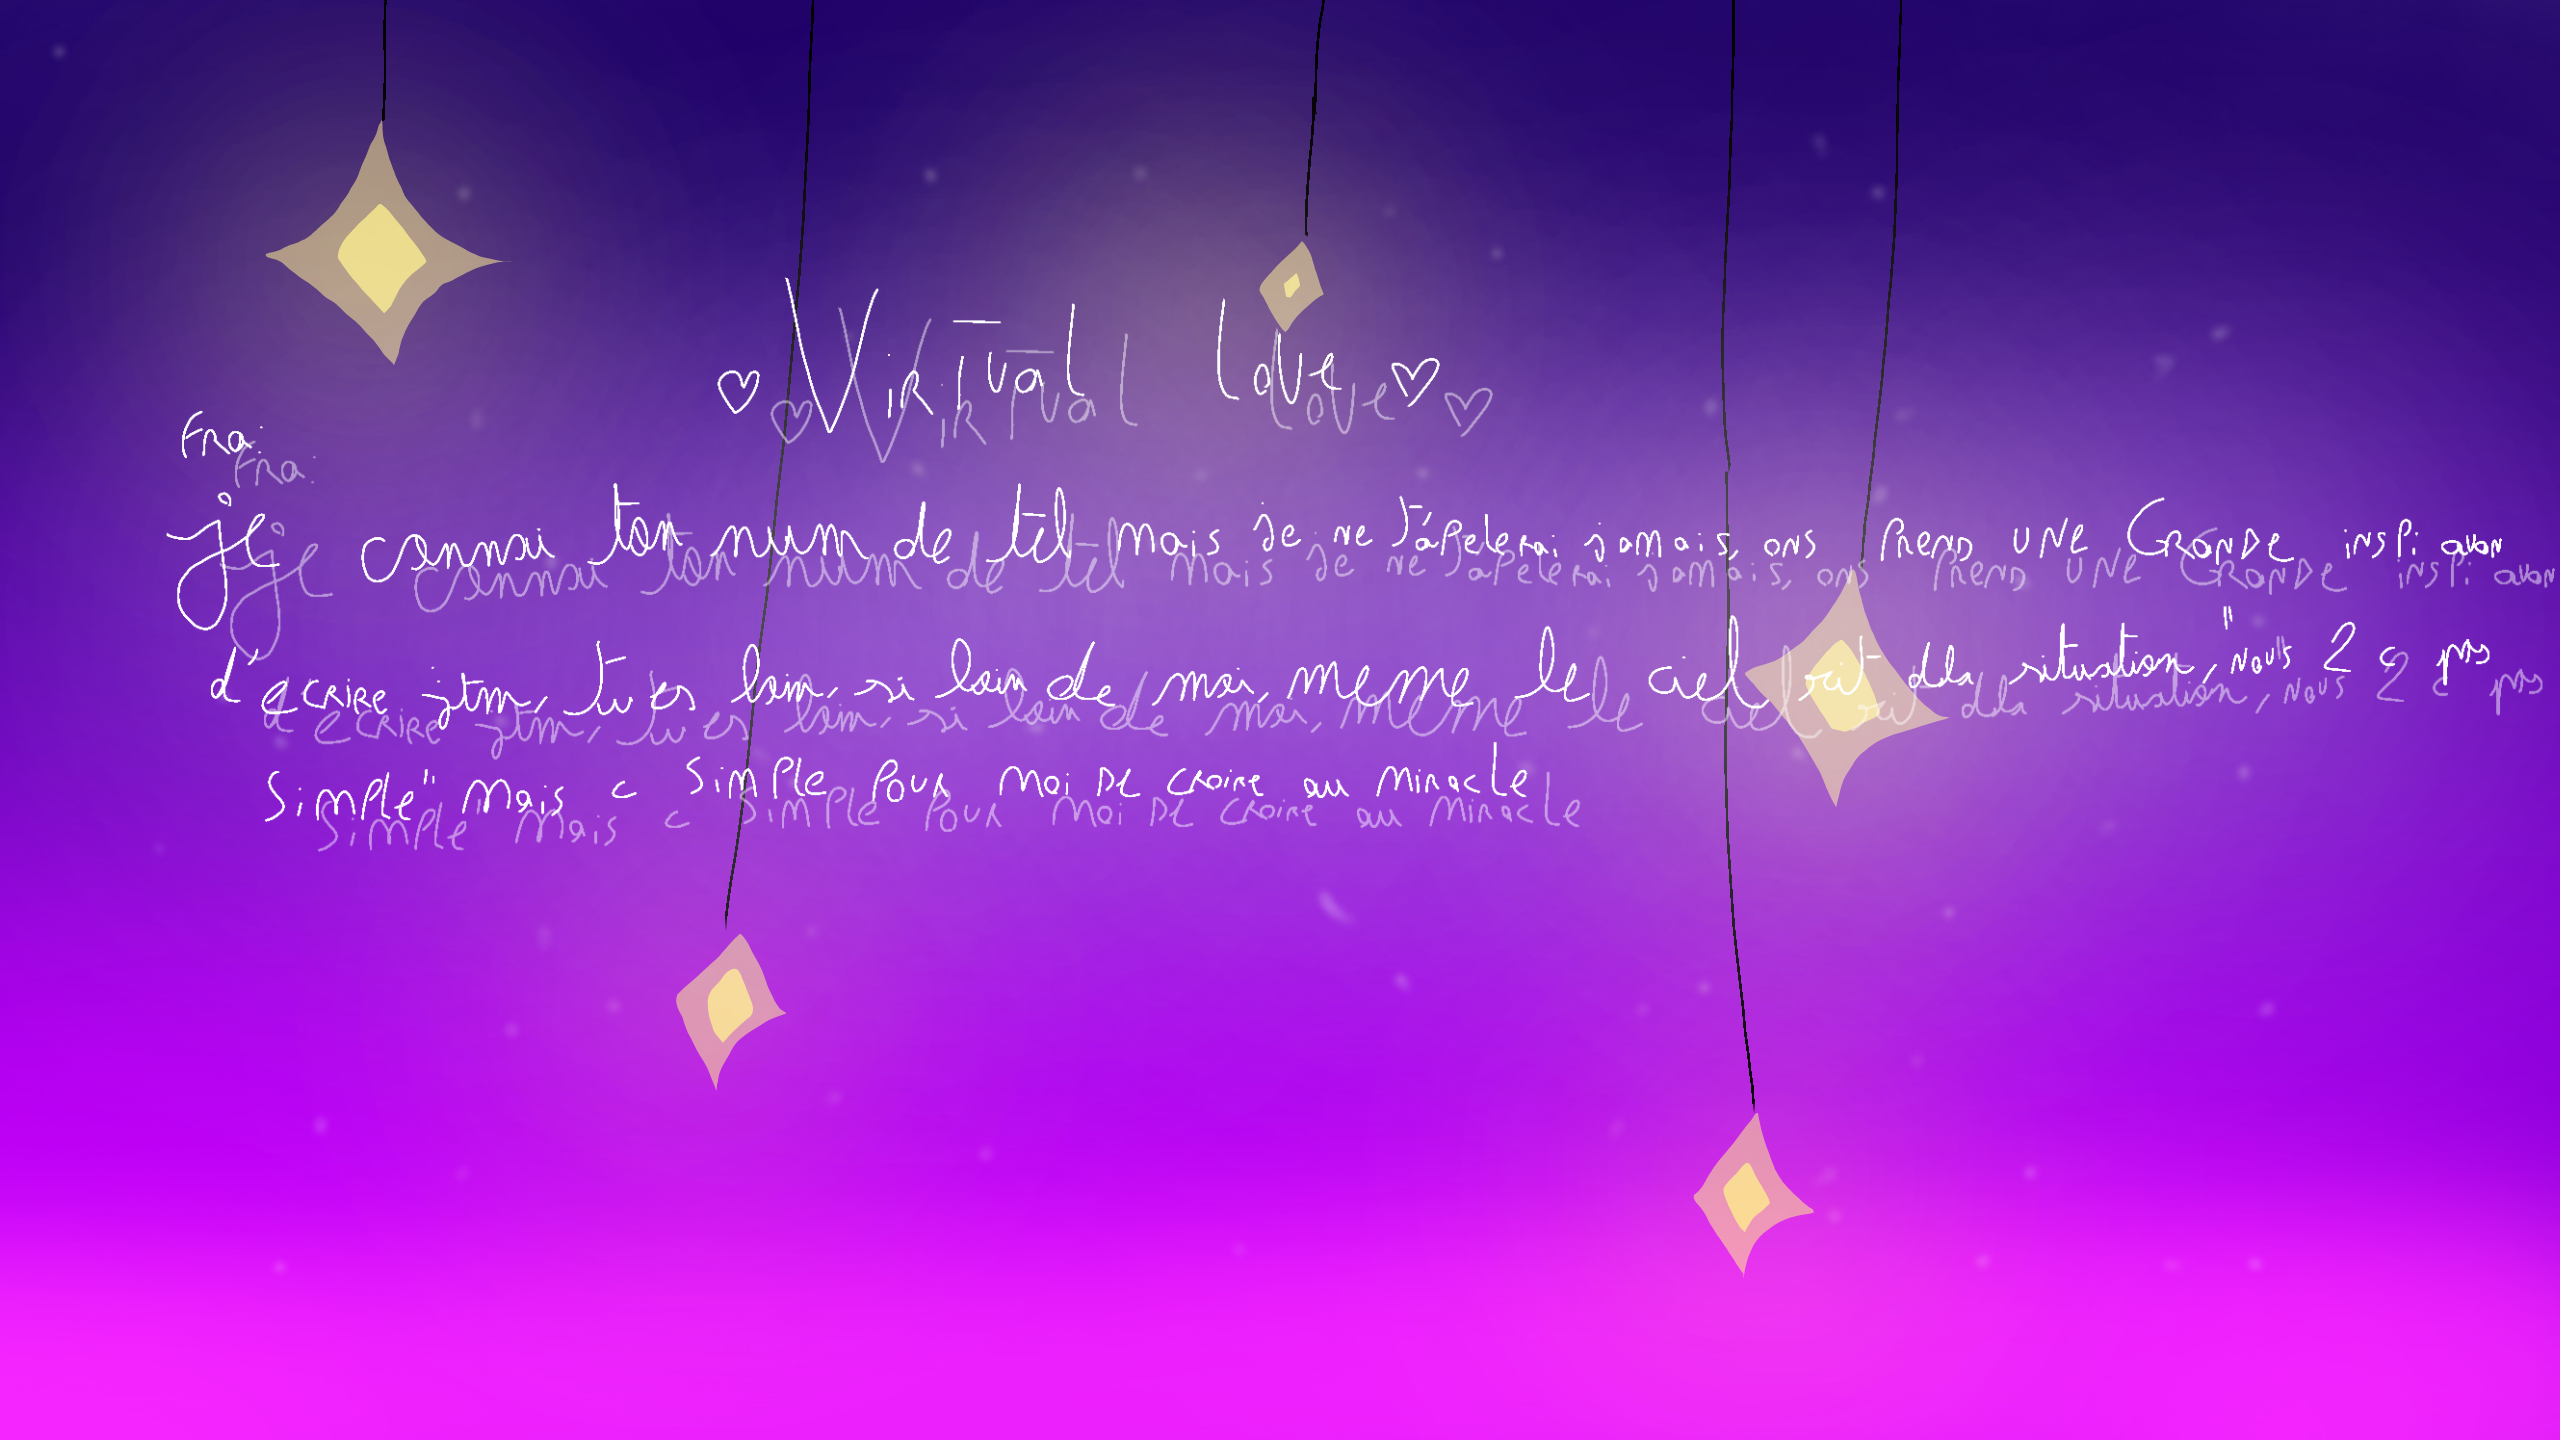 ♡ Virtual love ♡
Fra:
je connai ton num de tel mais je ne t'apelerai jamais, ons prend une grande inspi avan
d'ecrire jtm, tu es loin, si loin de moi, meme le ciel rit dla situation, "nous 2 c pas
simple" mais c simple pour moi de croire au miracle